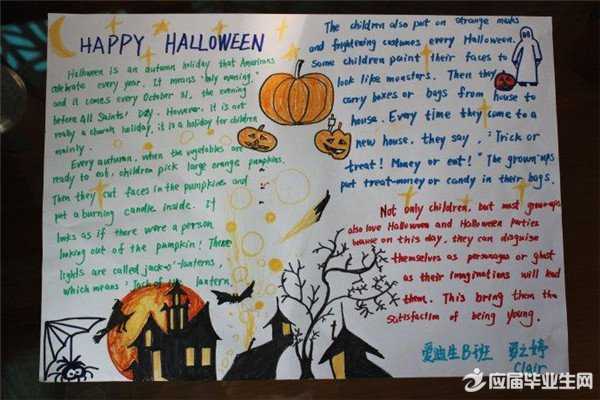 HAPPY HALLOWEEN
Halloween is an autumn holiday that Americans
celebrate every year. It means "holy evening,"
and it comes every October 31, the evening
before All Saints' Day. However, it is not
really a church holiday, it is a holiday for children
mainly.
Every autumn, when the vegetables are
ready to eat, children pick large orange pumpkins.
Then they cut faces in the pumpkins and
put a burning candle inside. It
looks as if there were a person
looking out of the pumpkin! These
lights are called jack-o'-lanterns,
which means "Jack of the lantern.
The children also put on strange masks
and frightening costumes every Halloween.
Some children paint their faces to
look like monsters. Then they
carry boxes or bags from house to
house. Every time they come to a
new house, they say, "Trick or
treat! Money or eat!" The grown-ups
put treat-money or candy in their bags.
Not only children, but most grown-ups
also love Halloween and Halloween parties
because on this day, they can disguise
themselves as personages or ghost
as their imaginations will lead
them. This bring them the
satisfaction of being young.
B班
Clair
应届毕业生网